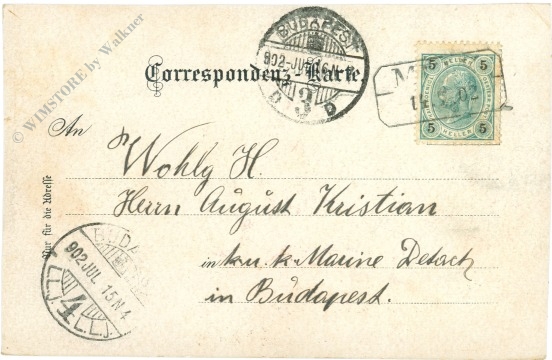 © WIMSTORE by Walkner
BUDAPEST
902 JUL 15 N 4
3
D D
Correspondenz-Karte
5 5
HELLER HELLER
5 5
An
Wohlg H.
Herrn August Kristian
Nur für die Adresse
in k. u. k. Marine Detach
in Budapest.
BUDA
902 JUL 15 N 4
4